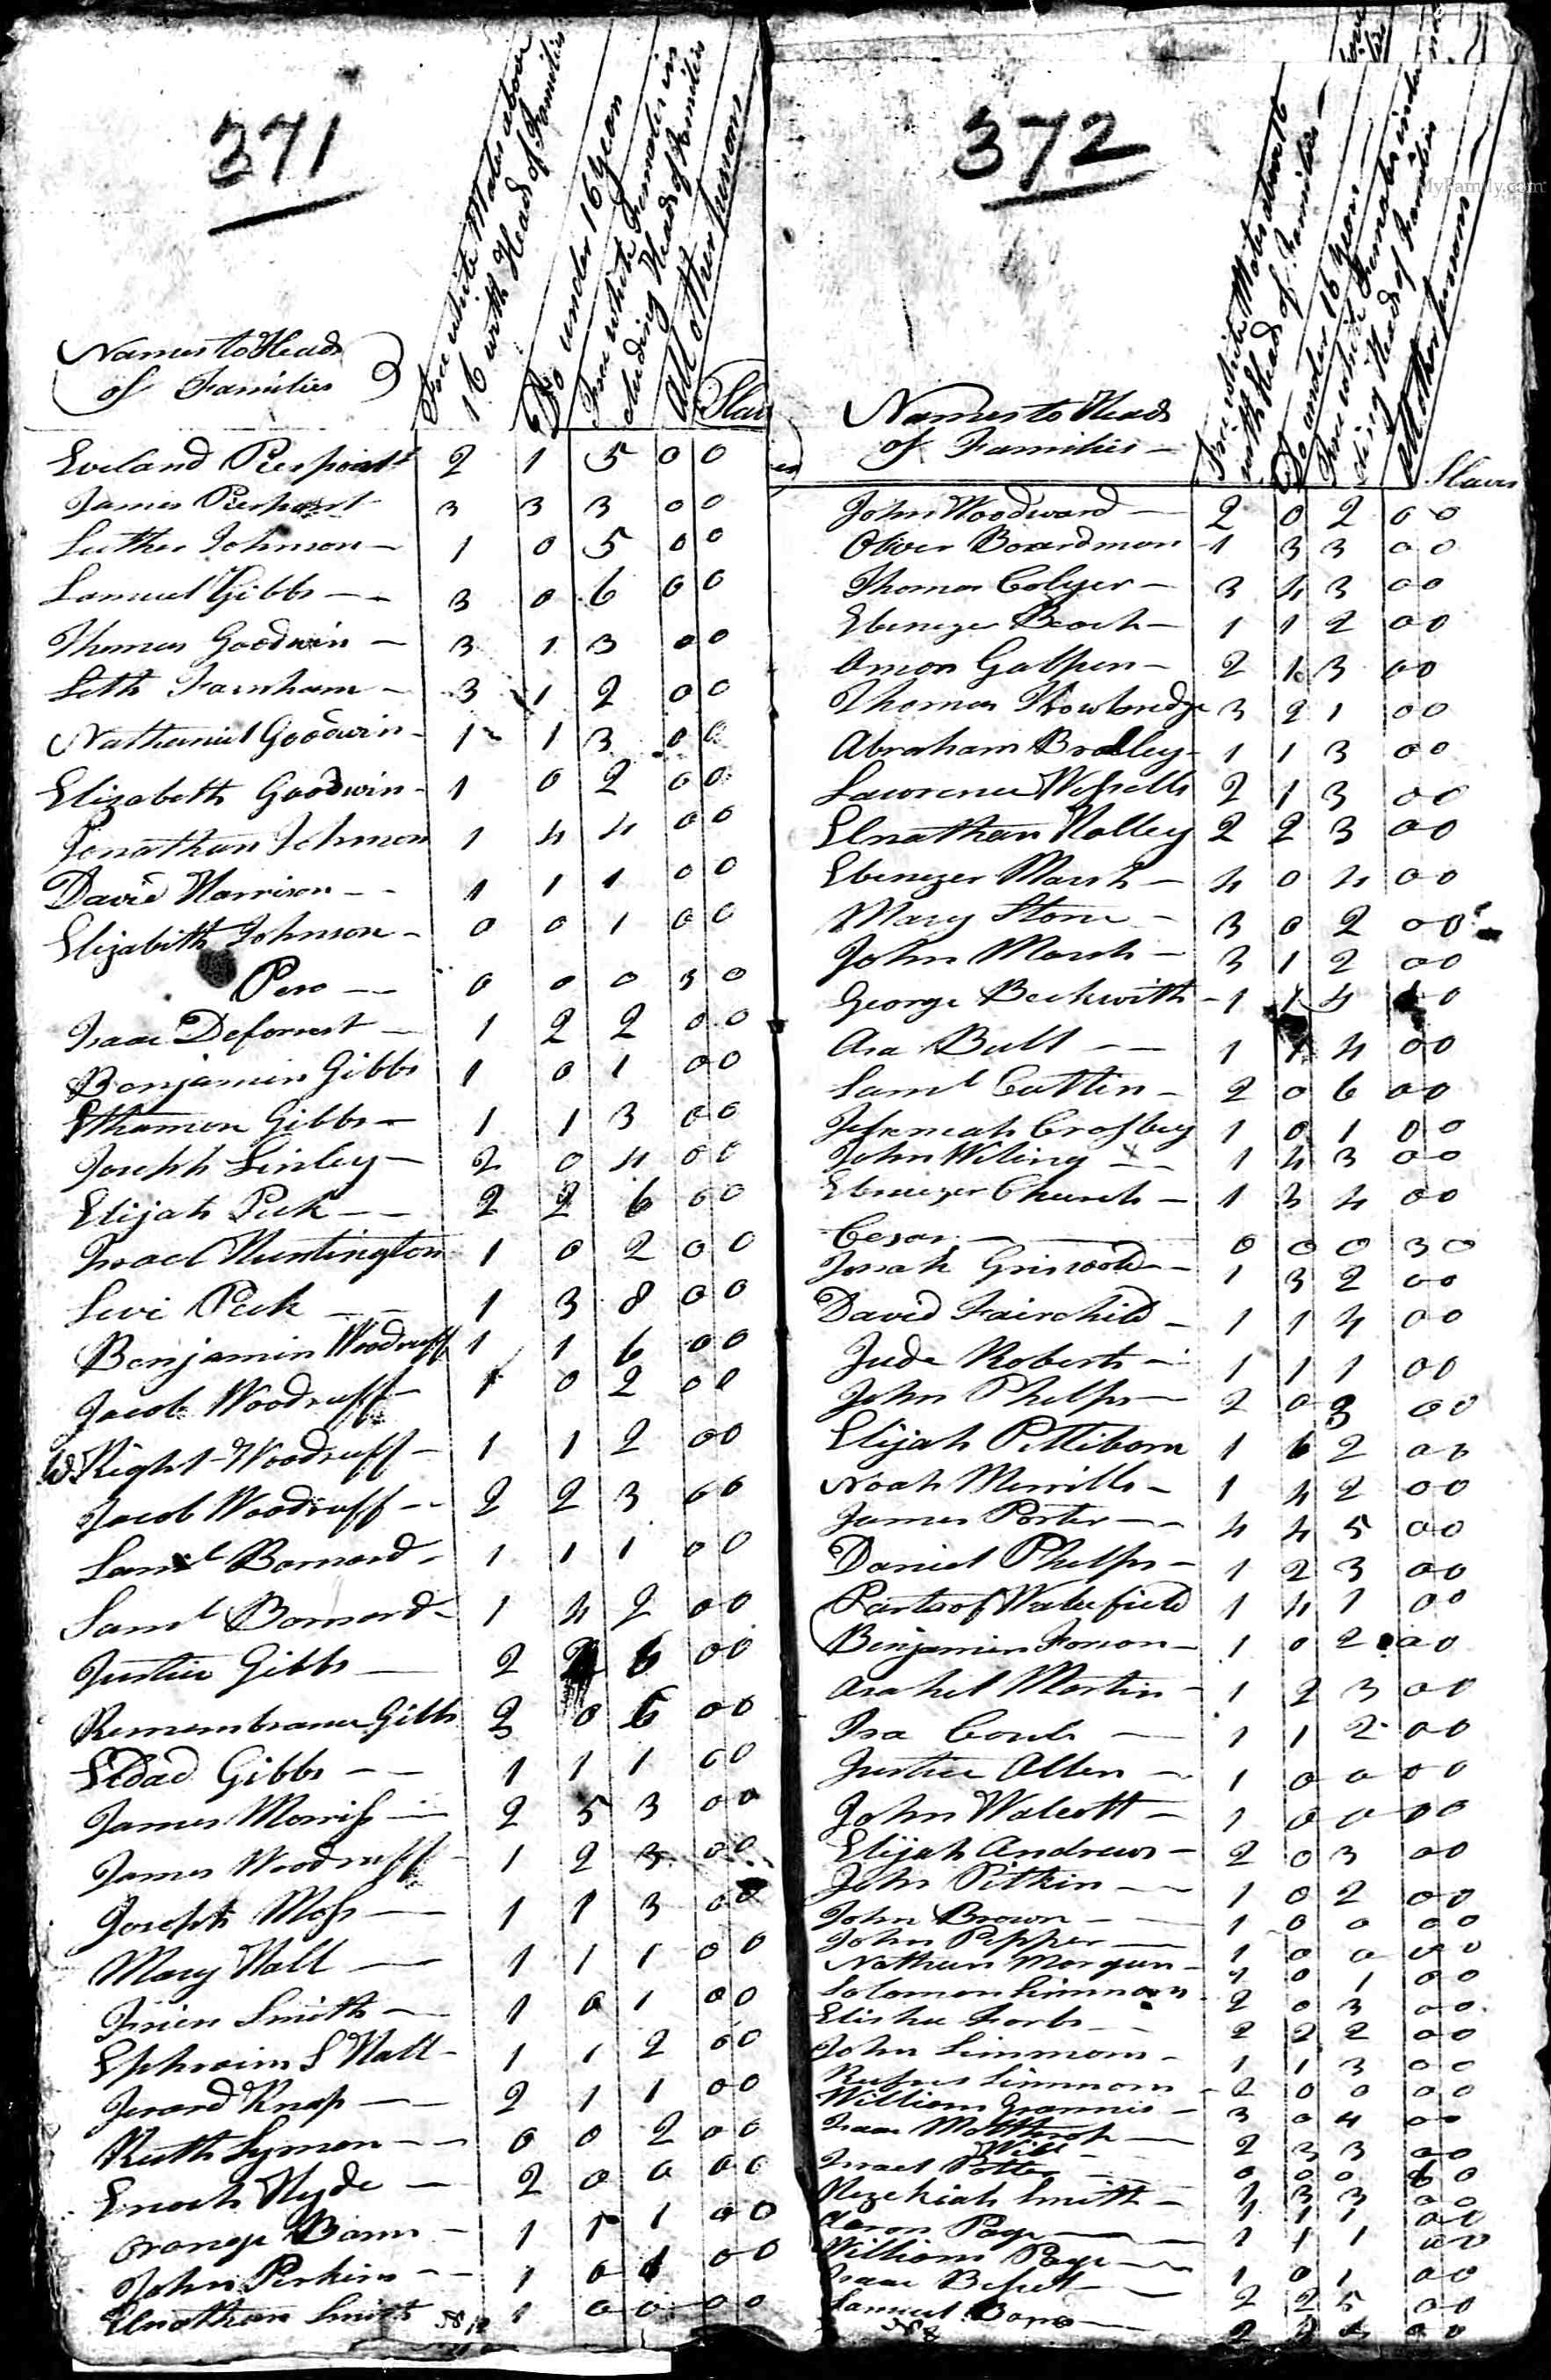 371
Names to Heads
of Families
Free white Males above
16 with Head of Families
Do under 16 years
Free white Females in
cluding Heads of Families
All other persons
Slav
Eveland Pierpoint 2 1 5 0 0
James Pierpoint 3 3 3 0 0
Luther Johnson 1 0 5 0 0
Lemuel Gibbs 3 0 6 0 0
Thomas Goodwin 3 1 3 0 0
Seth Farnham 3 1 2 0 0
Nathaniel Goodwin 1 1 3 0 0
Elizabeth Goodwin 1 0 2 0 0
Jonathan Johnson 1 4 4 0 0
David Harrison 1 1 1 0 0
Elizabeth Johnson 0 0 1 0 0
Pero 0 0 0 3 0
Isaac Deforrest 1 2 2 0 0
Benjamin Gibbs 1 0 1 0 0
Ethamon Gibbs 1 1 3 0 0
Joseph Linley 2 0 4 0 0
Elijah Peck 2 2 6 0 0
Israel Huntington 1 0 2 0 0
Levi Peck 1 3 8 0 0
Benjamin Woodruff 1 1 6 0 0
Jacob Woodruff 1 0 2 0 0
Wright Woodruff 1 1 2 0 0
Jacob Woodruff 2 2 3 0 0
Saml Barnard 1 1 1 0 0
Saml Barnard 1 4 2 0 0
Justice Gibbs 2 6 0 0
Remembrance Gibbs 2 0 6 0 0
Eldad Gibbs 1 1 1 0 0
James Morriss 2 5 3 0 0
James Woodruff 1 2 3 0 0
Joseph Moss 1 1 3 0 0
Mary Hall 1 1 1 0 0
Smith 1 0 1 0 0
Ephraim S Hall 1 1 2 0 0
Jerard Knap 2 1 1 0 0
Ruth Lyman 0 0 2 0 0
Enoch Hyde 2 0 0 0 0
Orange Barns 1 1 1 0 0
John Perkins 1 0 1 0 0
Elnathan Smith 1 0 0 0 0
372
MyFamily.com
Names to Heads
of Families
Free white Males above 16
with Head of Families
Do under 16 years
Free white Females inclu
ding Heads of Families
All other persons
Slaves
John Woodward 2 0 2 0 0
Oliver Boardman 1 3 3 0 0
Thomas Colyer 3 4 3 0 0
Ebenezer Beach 1 1 2 0 0
Amon Galpen 2 1 3 0 0
Thomas Trowbridge 3 2 1 0 0
Abraham Bradley 1 1 3 0 0
Lawrence Wessells 2 1 3 0 0
Elnathan Holley 2 2 3 0 0
Ebenezer Marsh 4 0 4 0 0
Mary Stone 3 0 2 0 0
John Marsh 3 1 2 0 0
George Beckwith 1 1 4 0
Asa Bull 1 1 4 0 0
Saml Cattlin 2 0 6 0 0
Crossbey 1 0 1 0 0
John Wiling 1 4 3 0 0
Ebenezer Church 1 3 4 0 0
Cesar 0 0 0 3 0
Josiah Griswold 1 3 2 0 0
David Fairchild 1 1 4 0 0
Jude Roberts 1 1 1 0 0
John Phelps 2 0 3 0 0
Elijah Pittiborn 1 6 2 0 0
Noah Merrills 1 4 2 0 0
James Porter 4 4 5 0 0
Daniel Phelps 1 2 3 0 0
Waterfield 1 4 1 0 0
Benjamin 1 0 2 0 0
Asahel Martin 1 2 3 0 0
Ira 1 1 2 0 0
Justice Allen 1 0 0 0 0
John Walcott 1 0 0 0 0
Elijah Andrews 2 0 3 0 0
John Pitkin 1 0 2 0 0
John Brown 1 0 0 0 0
John Pepper 1 0 0 0 0
Nathan Morgan 1 0 1 0 0
Solomon Simmons 2 0 3 0 0
Elisha Forbs 2 2 2 0 0
John Simmons 1 1 3 0 0
Rufus Simmons 2 0 0 0 0
William Grannis 3 0 4 0 0
Isaac 2 3 3 0 0
Will 0 0 0 6 0
Israel Potter 1 3 3 0 0
Hezekiah Smith 1 1 1 0 0
Aaron Page 1 1 1 0 0
William Page 1 0 1 0 0
Isaac 2 2 5 0 0
Samuel Barns 0 0